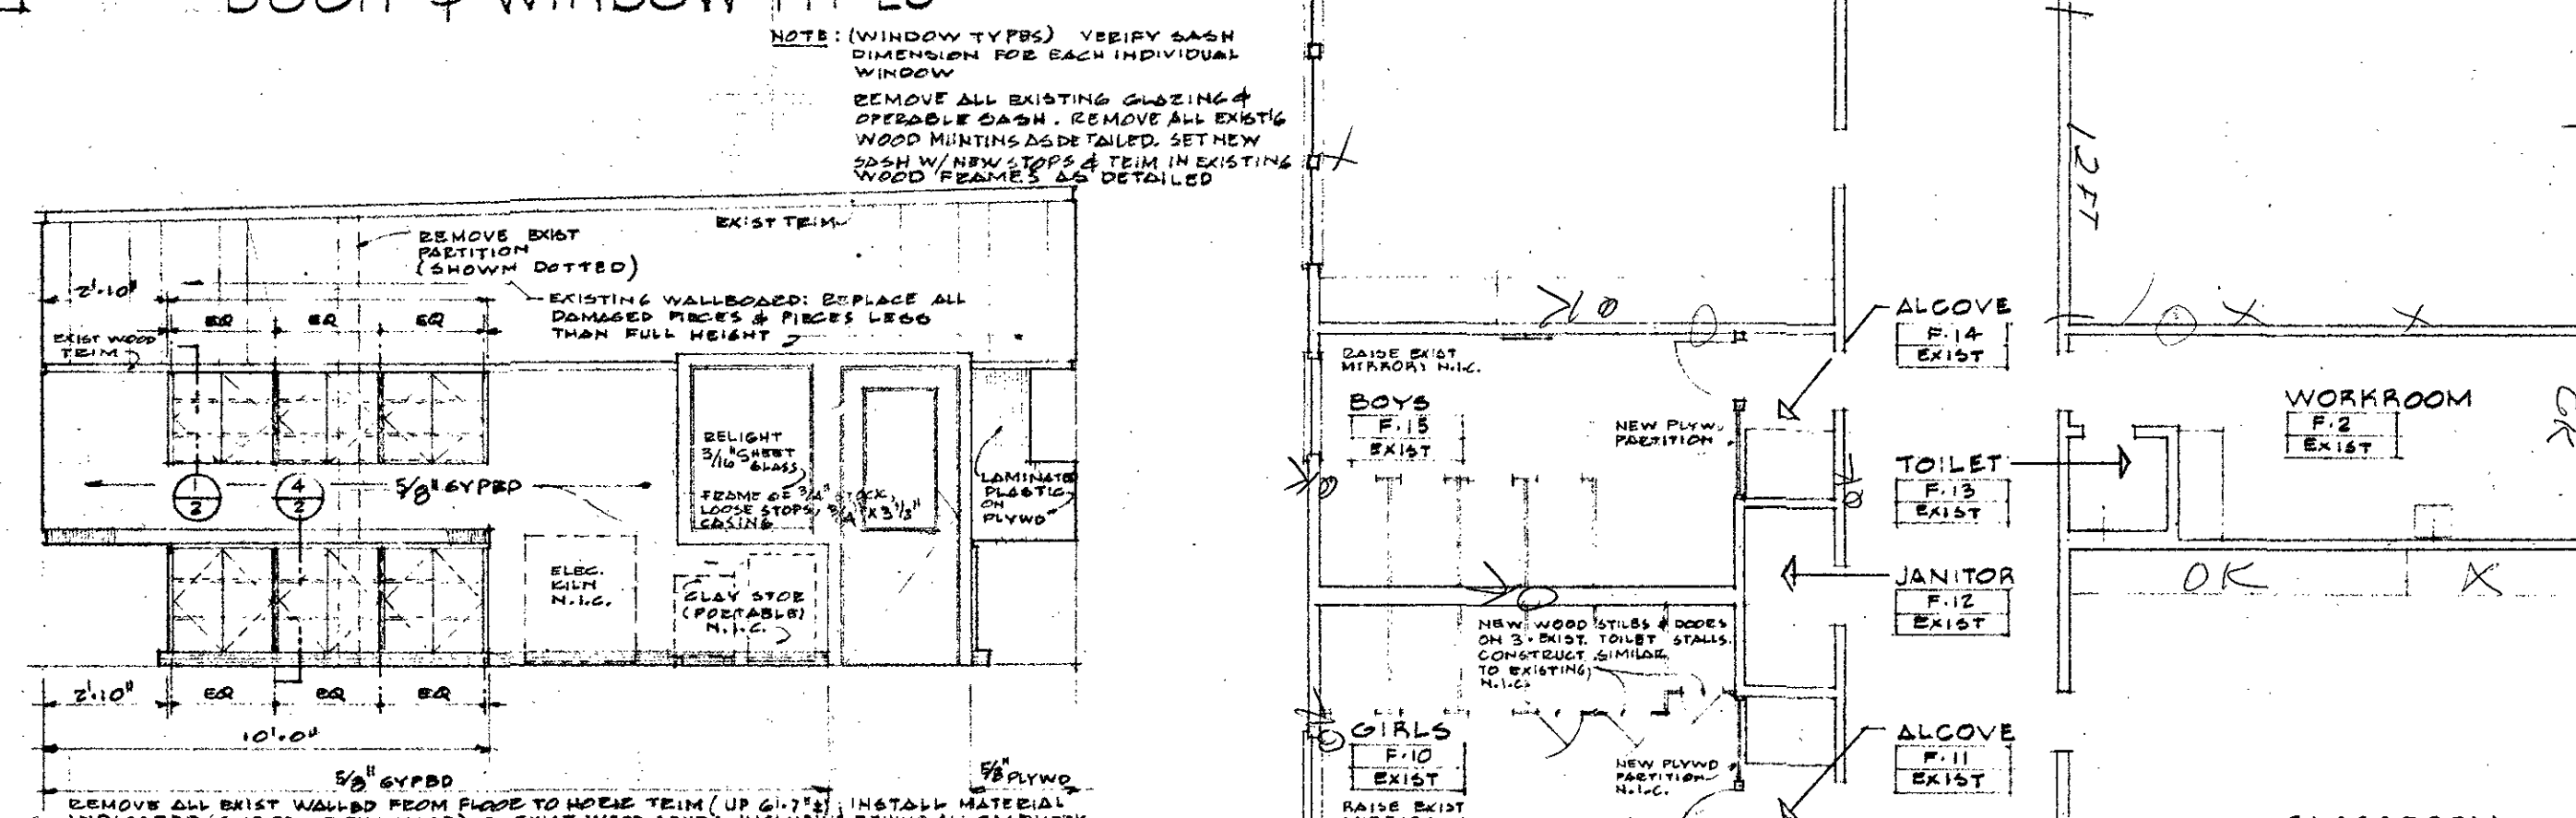 DOOR & WINDOW TYPES
NOTE: (WINDOW TYPES) VERIFY SASH
DIMENSION FOR EACH INDIVIDUAL
WINDOW
REMOVE ALL EXISTING GLAZING &
OPERABLE SASH. REMOVE ALL EXIST'G
WOOD MUNTINS AS DETAILED. SET NEW
SASH W/ NEW STOPS & TRIM IN EXISTING
WOOD FRAMES AS DETAILED
EXIST TRIM
REMOVE EXIST
PARTITION
(SHOWN DOTTED)
2'-10"
EXISTING WALLBOARD: REPLACE ALL
DAMAGED PIECES & PIECES LESS
THAN FULL HEIGHT
EQ EQ EQ
EXIST WOOD
TRIM
RELIGHT
3/16" SHEET
GLASS
FRAME OF 3/4" STOCK,
LOOSE STOPS, 3/4" X 3 1/3"
CASING
LAMINATED
PLASTIC
ON
PLYWD
1
2
4
2
5/8" GYPBD
ELEC.
KILN
N.I.C.
CLAY STOR
(PORTABLE)
N.I.C.
2'-10" EQ EQ EQ
10'-0"
5/8" GYPBD
5/8" PLYWD
REMOVE ALL EXIST WALLBD FROM FLOOR TO HORIZ TRIM (UP 6'-7"±), INSTALL MATERIAL
12 FT
RAISE EXIST
MIRROR, N.I.C.
BOYS
F-15
EXIST
NEW PLYW.
PARTITION
ALCOVE
F-14
EXIST
WORKROOM
F-2
EXIST
OK
TOILET
F-13
EXIST
JANITOR
F-12
EXIST
OK X
NEW WOOD STILES & DOORS
ON 3 EXIST. TOILET STALLS.
CONSTRUCT SIMILAR
TO EXISTING,
N.I.C.
GIRLS
F-10
EXIST
RAISE EXIST
NEW PLYWD
PARTITION
N.I.C.
ALCOVE
F-11
EXIST
CLASSROOM